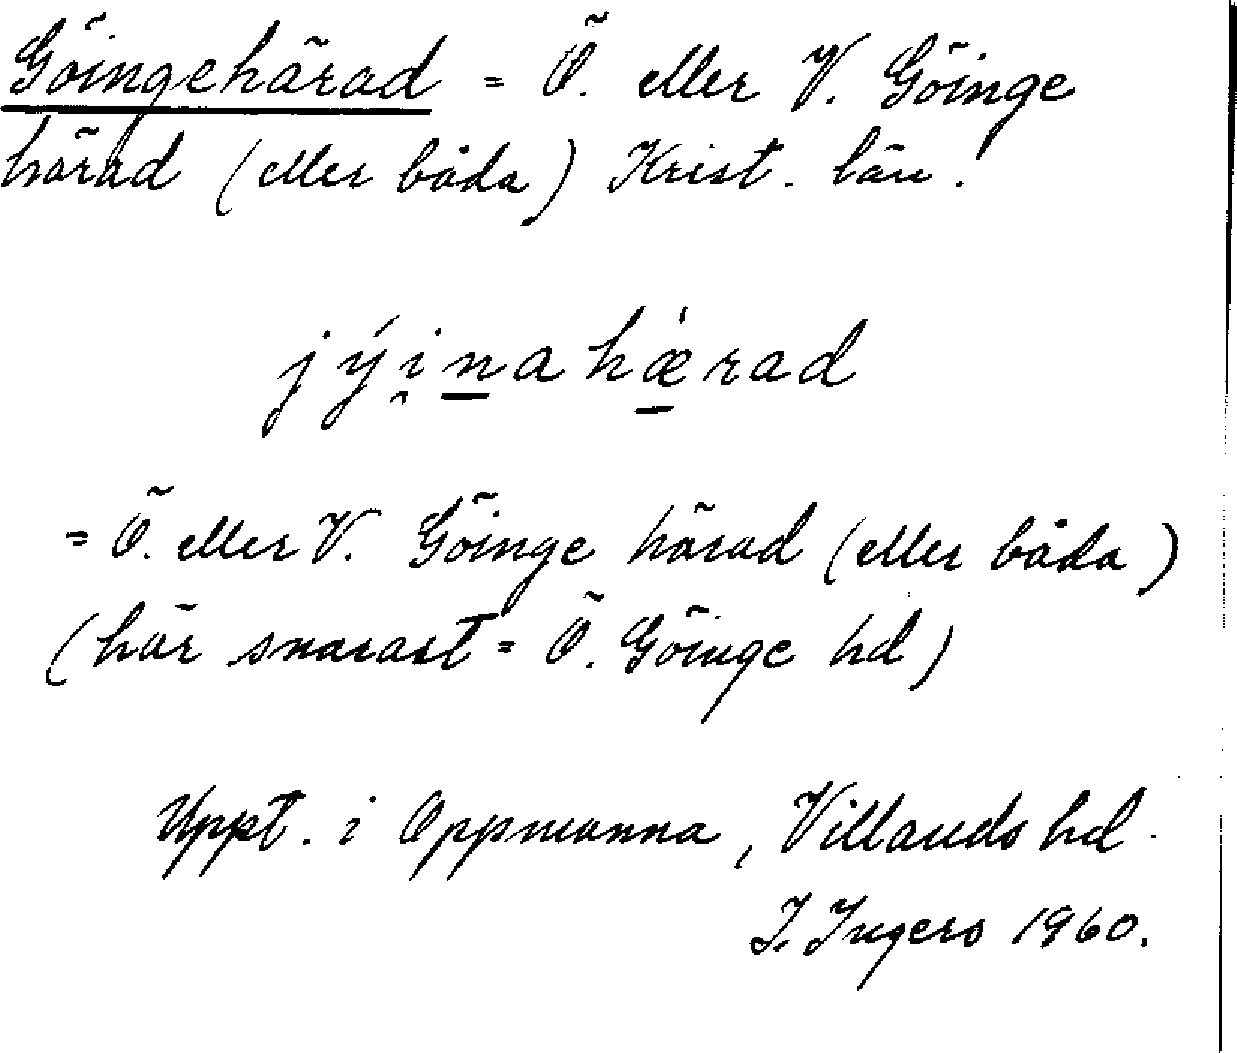 Göingehärad = Ö. eller V. Göinge
härad (eller båda) Krist. län.
jýi̯n̲ahæ̲̇rad
= Ö. eller V. Göinge härad (eller båda)
(här snarast = Ö. Göinge hd)
Uppt. i Oppmanna, Villands hd.
I. Ingers 1960.